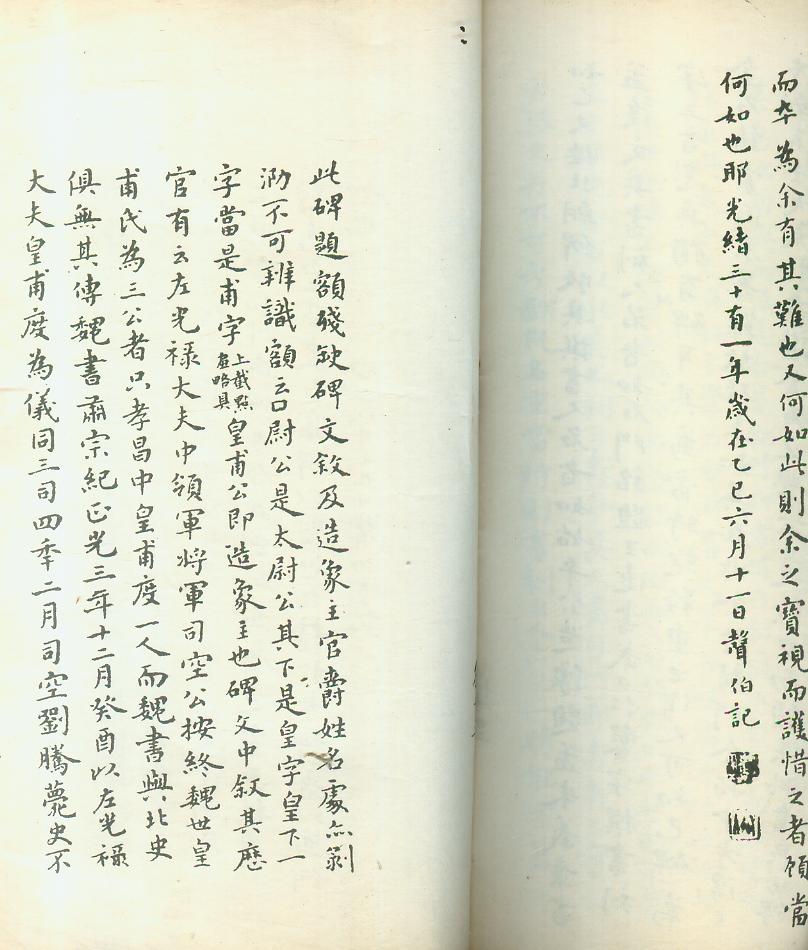 而卒為余有其難也又何如此則余之寶視而護惜之者頎當
何如也耶光緒三十有一年歲在乙巳六月十一日聲伯記
此碑題額殘缺碑文敘及造象主官爵姓名處亦剝
泐不可辨識額云口尉公是太尉公其下是皇字皇下一
字當是甫字上截點畫略具皇甫公即造象主也碑文中敘其歷
官有云左光祿大夫中領軍將軍司空公按終魏世皇
甫氏為三公者只孝昌中皇甫度一人而魏書與北史
俱無其傳魏書肅宗紀正光三年十二月癸酉以左光祿
大夫皇甫度為儀同三司四年二月司空劉騰薨史不